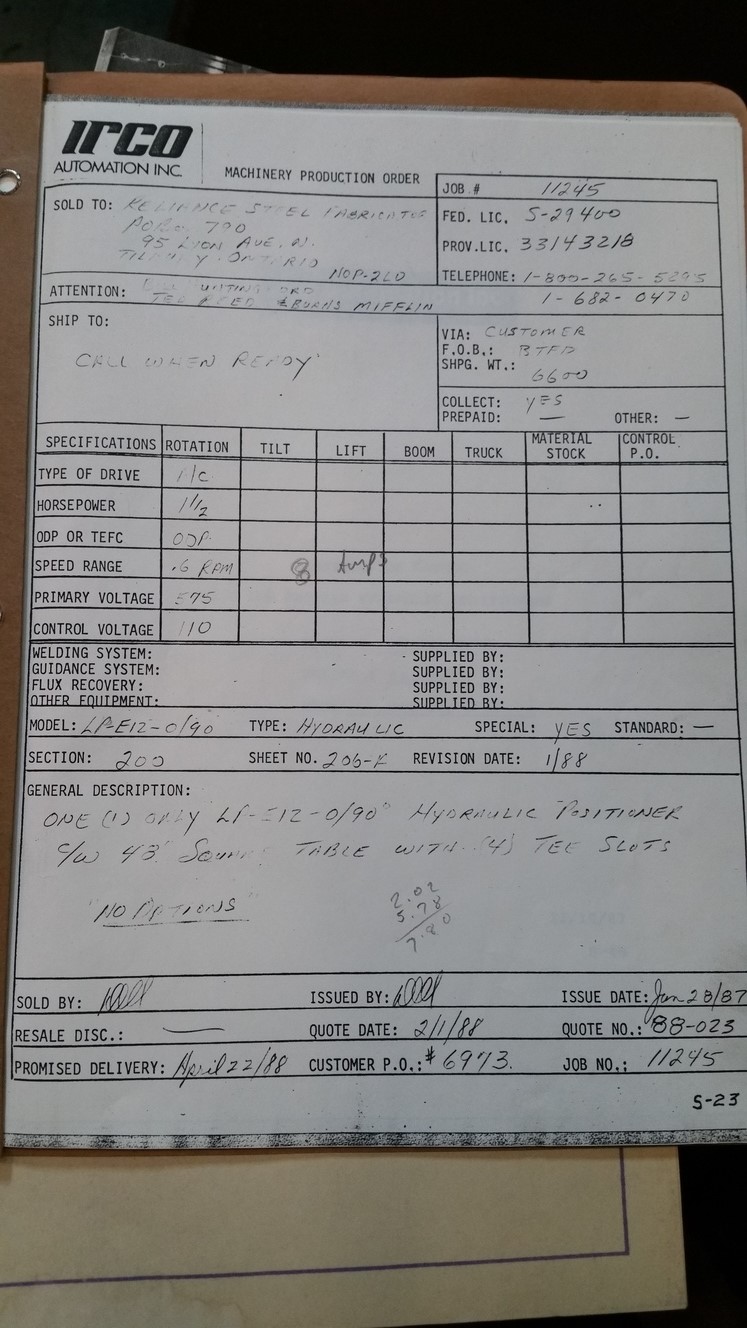 IRCO
AUTOMATION INC.
MACHINERY PRODUCTION ORDER
JOB # 11245
SOLD TO: RELIANCE STEEL FABRICATOR
790
95 LYON AVE. N.
TILBURY ONTARIO
N0P-2L0
FED. LIC. S-29400
PROV.LIC. 33143218
TELEPHONE: 1-800-265-5295
1-682-0470
ATTENTION:
BURNS MIFFLIN
SHIP TO:
CALL WHEN READY
VIA: CUSTOMER
F.O.B.: BTFD
SHPG. WT.:
6600
COLLECT: YES
PREPAID: — OTHER: —
SPECIFICATIONS ROTATION TILT LIFT BOOM TRUCK MATERIAL STOCK CONTROL P.O.
TYPE OF DRIVE
HORSEPOWER 1 1/2
ODP OR TEFC ODP
SPEED RANGE .6 RPM 8 Amps
PRIMARY VOLTAGE 575
CONTROL VOLTAGE 110
WELDING SYSTEM: SUPPLIED BY:
GUIDANCE SYSTEM: SUPPLIED BY:
FLUX RECOVERY: SUPPLIED BY:
OTHER EQUIPMENT: SUPPLIED BY:
MODEL: LP-E12-0/90 TYPE: HYDRAULIC SPECIAL: YES STANDARD: —
SECTION: 200 SHEET NO. 206-F REVISION DATE: 1/88
GENERAL DESCRIPTION:
ONE (1) ONLY LP-E12-0/90° HYDRAULIC POSITIONER
C/W 43" SQUARE TABLE WITH (4) TEE SLOTS
"NO OPTIONS"
2.02
5.78
7.80
SOLD BY: ISSUED BY: ISSUE DATE: Jan 28/87
RESALE DISC.: — QUOTE DATE: 2/1/88 QUOTE NO.: 88-023
PROMISED DELIVERY: April 22/88 CUSTOMER P.O.: # 6973. JOB NO.: 11245
S-23